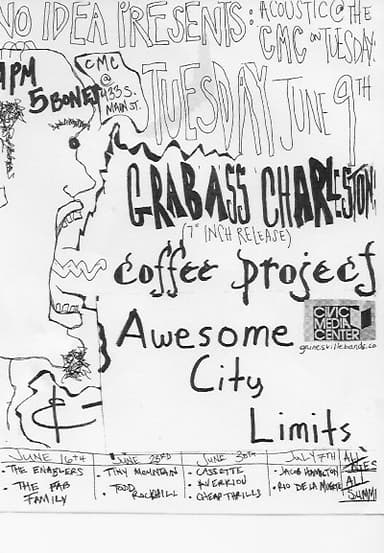 NO IDEA PRESENTS: ACOUSTIC @ THE
CMC ON TUESDAY:
9PM
5 BONES
CMC
@
433 S.
MAIN ST.
TUESDAY JUNE 9TH
GRABASS CHARLESTON
(7" INCH RELEASE)
coffee project
CIVIC
MEDIA
CENTER
gainesvillebands.co
Awesome
City
Limits
JUNE 16TH
• THE ENABLERS
• THE FAB
FAMILY
JUNE 23RD
• TINY MOUNTAIN
• TODD
ROCKHILL
JUNE 30TH
• CASSETTE
• AVERKIOU
• CHEAP THRILLS
JULY 7TH
• JACOB HAMILTON
• RIO DE LA MUERTE
ALL
AGES
ALL
SUMM